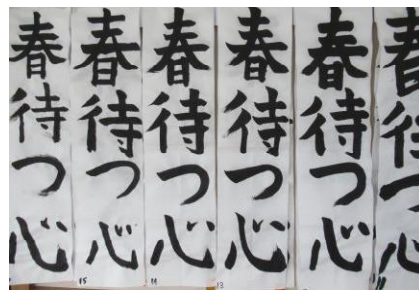 春待つ心
春待つ心
春待つ心
春待つ心
春待つ心
春待つ
15
11
13